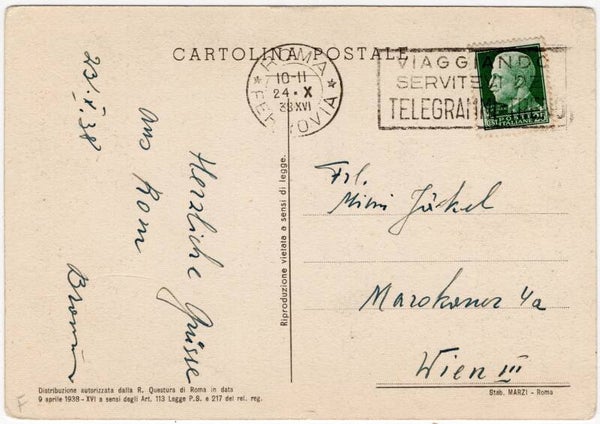 CARTOLINA POSTALE
ROMA
FERROVIA
10-11
24·X
38XVI
VIAGGIANDO
SERVITEVI DEI
TELEGRAMMI
POSTE
ITALIANE
23.X.38
Herzliche Grüsse
aus Rom
Riproduzione vietata a sensi di legge.
Frl.
Mimi Jäckel
Marokaner 4a
Wien III
Distribuzione autorizzata dalla R. Questura di Roma in data
9 aprile 1938 - XVI a sensi degli Art. 113 Legge P.S. e 217 del rel. reg.
Stab. MARZI - Roma
F